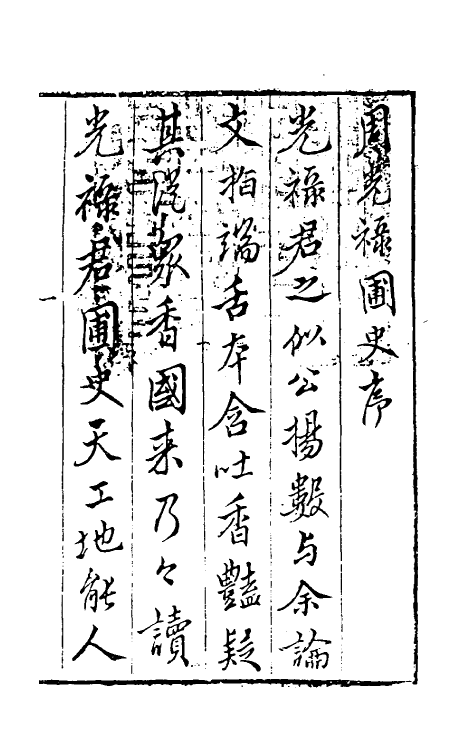 周光祿圃史序
光祿君之似公揚數与余論
文指端舌本含吐香豔疑
其從眾香國来乃今讀
光祿君圃史天工地能人